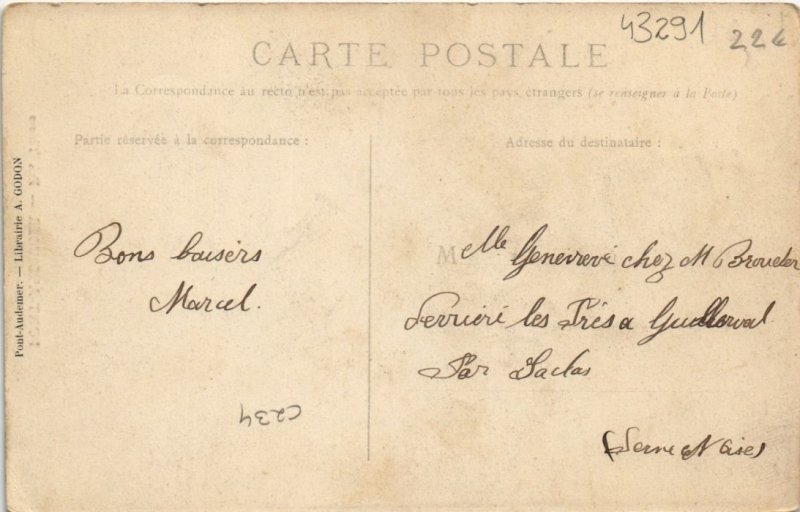 43291
22€
CARTE POSTALE
La Correspondance au recto n'est pas acceptée par tous les pays étrangers (se renseigner à la Poste)
Partie réservée à la correspondance :
Adresse du destinataire :
Pont-Audemer. — Librairie A. GODON
Bons baisers
Marcel.
M
Mlle Genevieve chez M Brouder
Ferriere les Prés a Guillerval
Par Saclas
(Seine et Oise)
C234